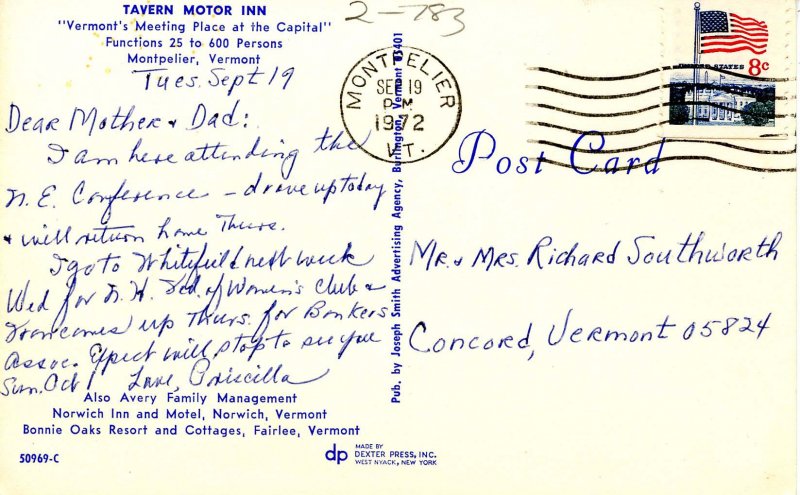 TAVERN MOTOR INN
"Vermont's Meeting Place at the Capital"
Functions 25 to 600 Persons
Montpelier, Vermont
2-783
Tues. Sept 19
Dear Mother & Dad:
I am here attending the
N. E. Conference - drove up today
& will return home Thurs.
I go to Whitefield next week
Wed for N. H. Fed. of Women's Club &
comes up Thurs. for Bankers
Assoc. Expect will stop to see you
Sun. Oct 1 Love, Priscilla
Also Avery Family Management
Norwich Inn and Motel, Norwich, Vermont
Bonnie Oaks Resort and Cottages, Fairlee, Vermont
50969-C
Pub. by Joseph Smith Advertising Agency, Burlington, Vermont 05401
dp
MADE BY
DEXTER PRESS, INC.
WEST NYACK, NEW YORK
MONTPELIER
SEP 19
P M
1972
VT.
UNITED STATES 8c
Post Card
Mr. & Mrs. Richard Southworth
Concord, Vermont 05824